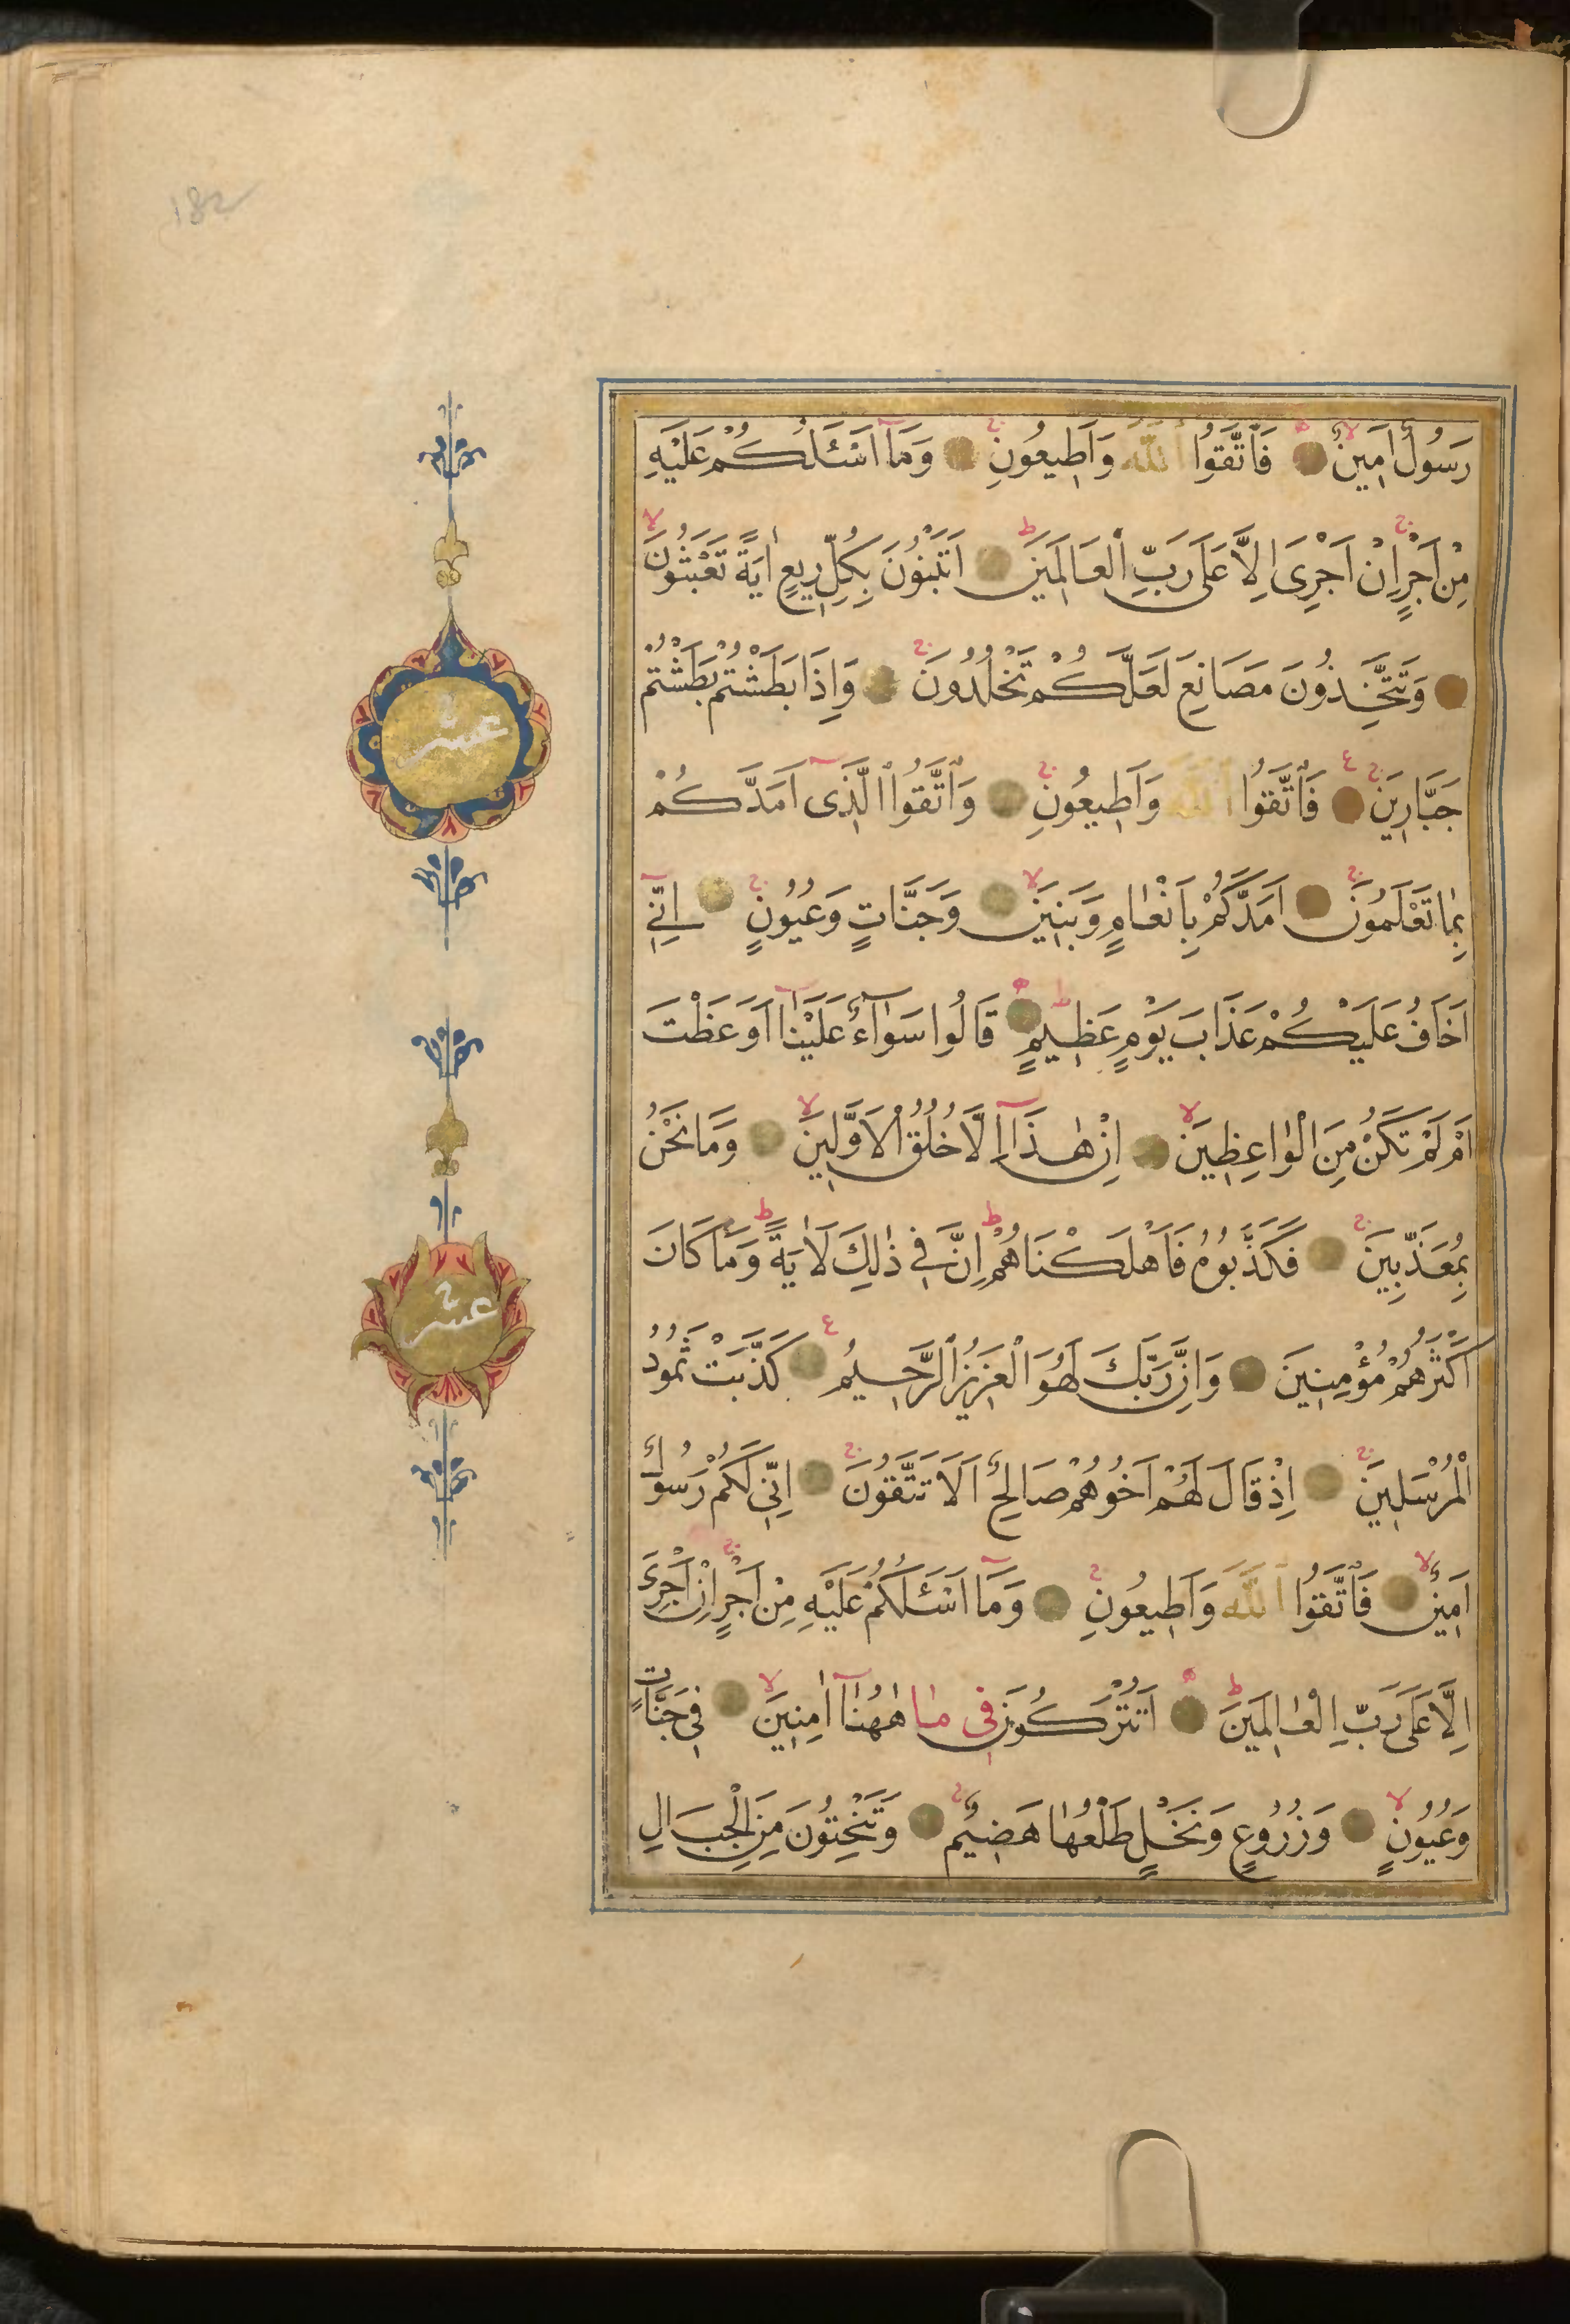 182
رَسُولٌ اَمِينٌ فَاتَّقُوا اللّٰهَ وَاَطِيعُونِ وَمَٓا اَسْـَٔلُكُمْ عَلَيْهِ
مِنْ اَجْرٍ اِنْ اَجْرِىَ اِلَّا عَلٰى رَبِّ الْعَالَمِينَ اَتَبْنُونَ بِكُلِّ رِيعٍ اٰيَةً تَعْبَثُونَ
وَتَتَّخِذُونَ مَصَانِعَ لَعَلَّكُمْ تَخْلُدُونَ وَاِذَا بَطَشْتُمْ بَطَشْتُمْ
جَبَّارِينَ فَاتَّقُوا اللّٰهَ وَاَطِيعُونِ وَاتَّقُوا الَّذِٓى اَمَدَّكُمْ
بِمَا تَعْلَمُونَ اَمَدَّكُمْ بِاَنْعَامٍ وَبَنِينَ وَجَنَّاتٍ وَعُيُونٍ اِنِّٓى
اَخَافُ عَلَيْكُمْ عَذَابَ يَوْمٍ عَظِيمٍ قَالُوا سَوَٓاءٌ عَلَيْنَٓا اَوَعَظْتَ
اَمْ لَمْ تَكُنْ مِنَ الْوَاعِظِينَ اِنْ هٰذَٓا اِلَّا خُلُقُ الْاَوَّلِينَ وَمَا نَحْنُ
بِمُعَذَّبِينَ فَكَذَّبُوهُ فَاَهْلَكْنَاهُمْ اِنَّ فِى ذٰلِكَ لَاٰيَةً وَمَا كَانَ
اَكْثَرُهُمْ مُؤْمِنِينَ وَاِنَّ رَبَّكَ لَهُوَ الْعَزِيزُ الرَّحِيمُ كَذَّبَتْ ثَمُودُ
الْمُرْسَلِينَ اِذْ قَالَ لَهُمْ اَخُوهُمْ صَالِحٌ اَلَا تَتَّقُونَ اِنِّى لَكُمْ رَسُولٌ
اَمِينٌ فَاتَّقُوا اللّٰهَ وَاَطِيعُونِ وَمَٓا اَسْـَٔلُكُمْ عَلَيْهِ مِنْ اَجْرٍ اِنْ اَجْرِىَ
اِلَّا عَلٰى رَبِّ الْعَالَمِينَ اَتُتْرَكُونَ فِى مَا هٰهُنَٓا اٰمِنِينَ فِى جَنَّاتٍ
وَعُيُونٍ وَزُرُوعٍ وَنَخْلٍ طَلْعُهَا هَضِيمٌ وَتَنْحِتُونَ مِنَ الْجِبَالِ
عشر
عشر